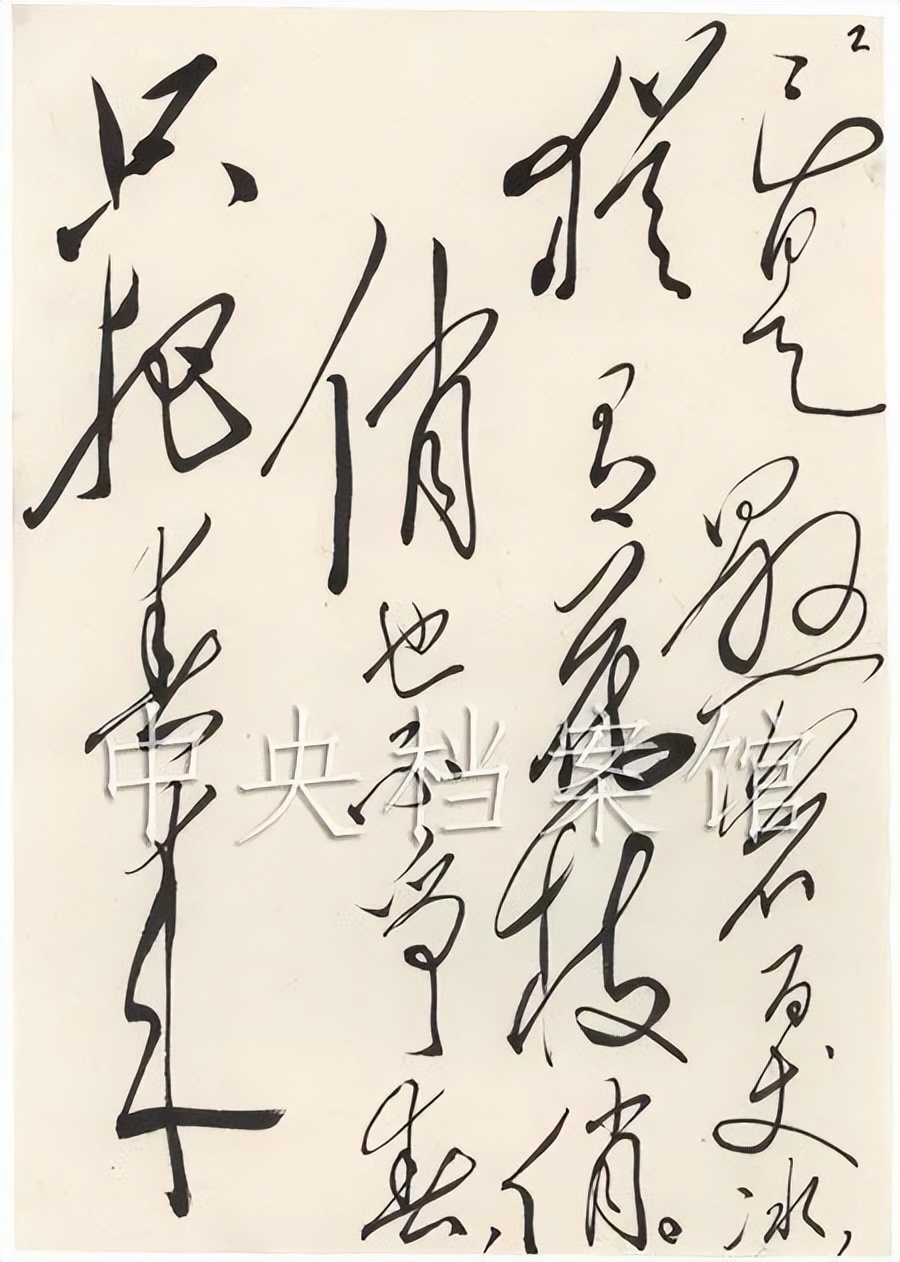 2
已是懸崖百丈冰,
猶有花枝俏。
俏也不争春,
只把春来
中央档案馆